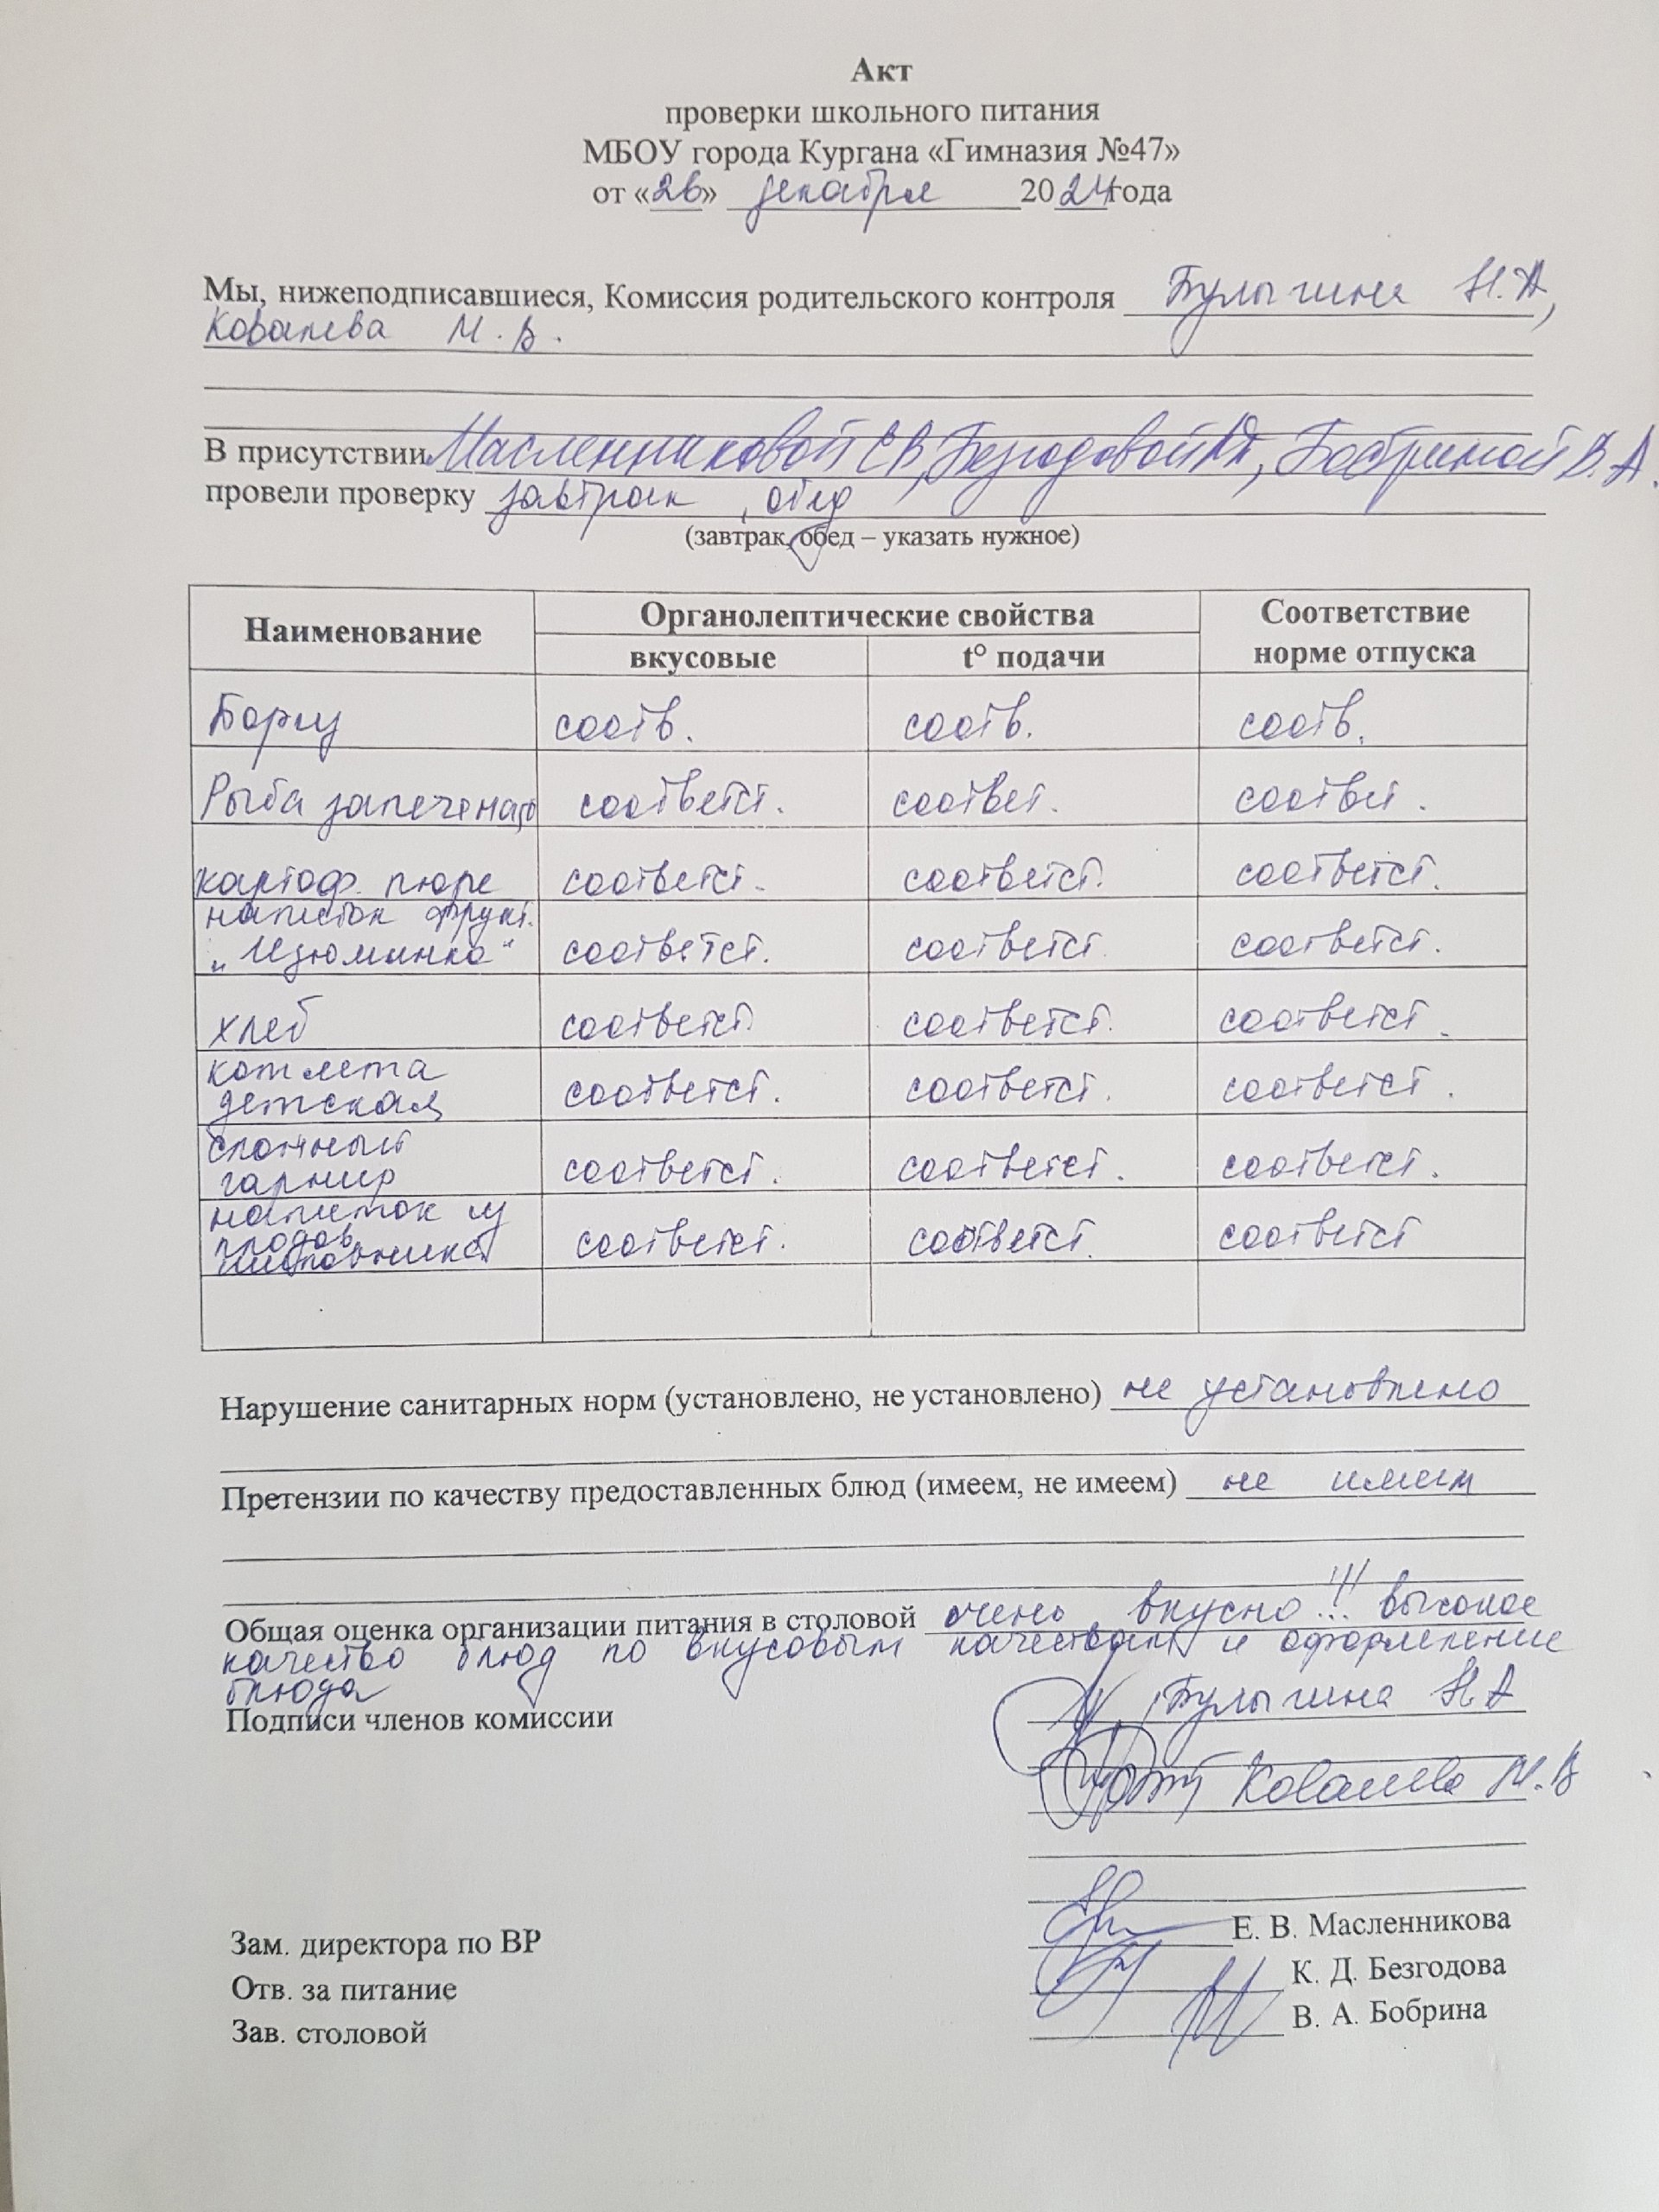 Акт
проверки школьного питания
МБОУ города Кургана «Гимназия №47»
от «26» декабря 2024 года
Мы, нижеподписавшиеся, Комиссия родительского контроля Булыгина Н.А,
Ковалева М.В.
В присутствии Масленниковой ЕВ, Безгодовой КД, Бобриной В.А.
провели проверку завтрак, обед
(завтрак, обед – указать нужное)
Наименование Органолептические свойства Соответствие норме отпуска
вкусовые t° подачи
Борщ соотв. соотв. соотв.
Рыба запеченая соответст. соответ. соответ.
картоф. пюре соответст. соответст. соответст.
напиток фрукт.
„Изюминка“ соответст. соответст. соответст.
хлеб соответст. соответст. соответст.
котлета
детская соответст. соответст. соответст.
сложный
гарнир соответст. соответст. соответст.
напиток из
плодов
шиповника соответст. соответст. соответст
Нарушение санитарных норм (установлено, не установлено) не установлено
Претензии по качеству предоставленных блюд (имеем, не имеем) не имеем
Общая оценка организации питания в столовой очень вкусно!!! высокое
качество блюд по вкусовым качествам и оформление
блюда
Подписи членов комиссии Булыгина Н А
Ковалева М.В
Зам. директора по ВР Е. В. Масленникова
Отв. за питание К. Д. Безгодова
Зав. столовой В. А. Бобрина